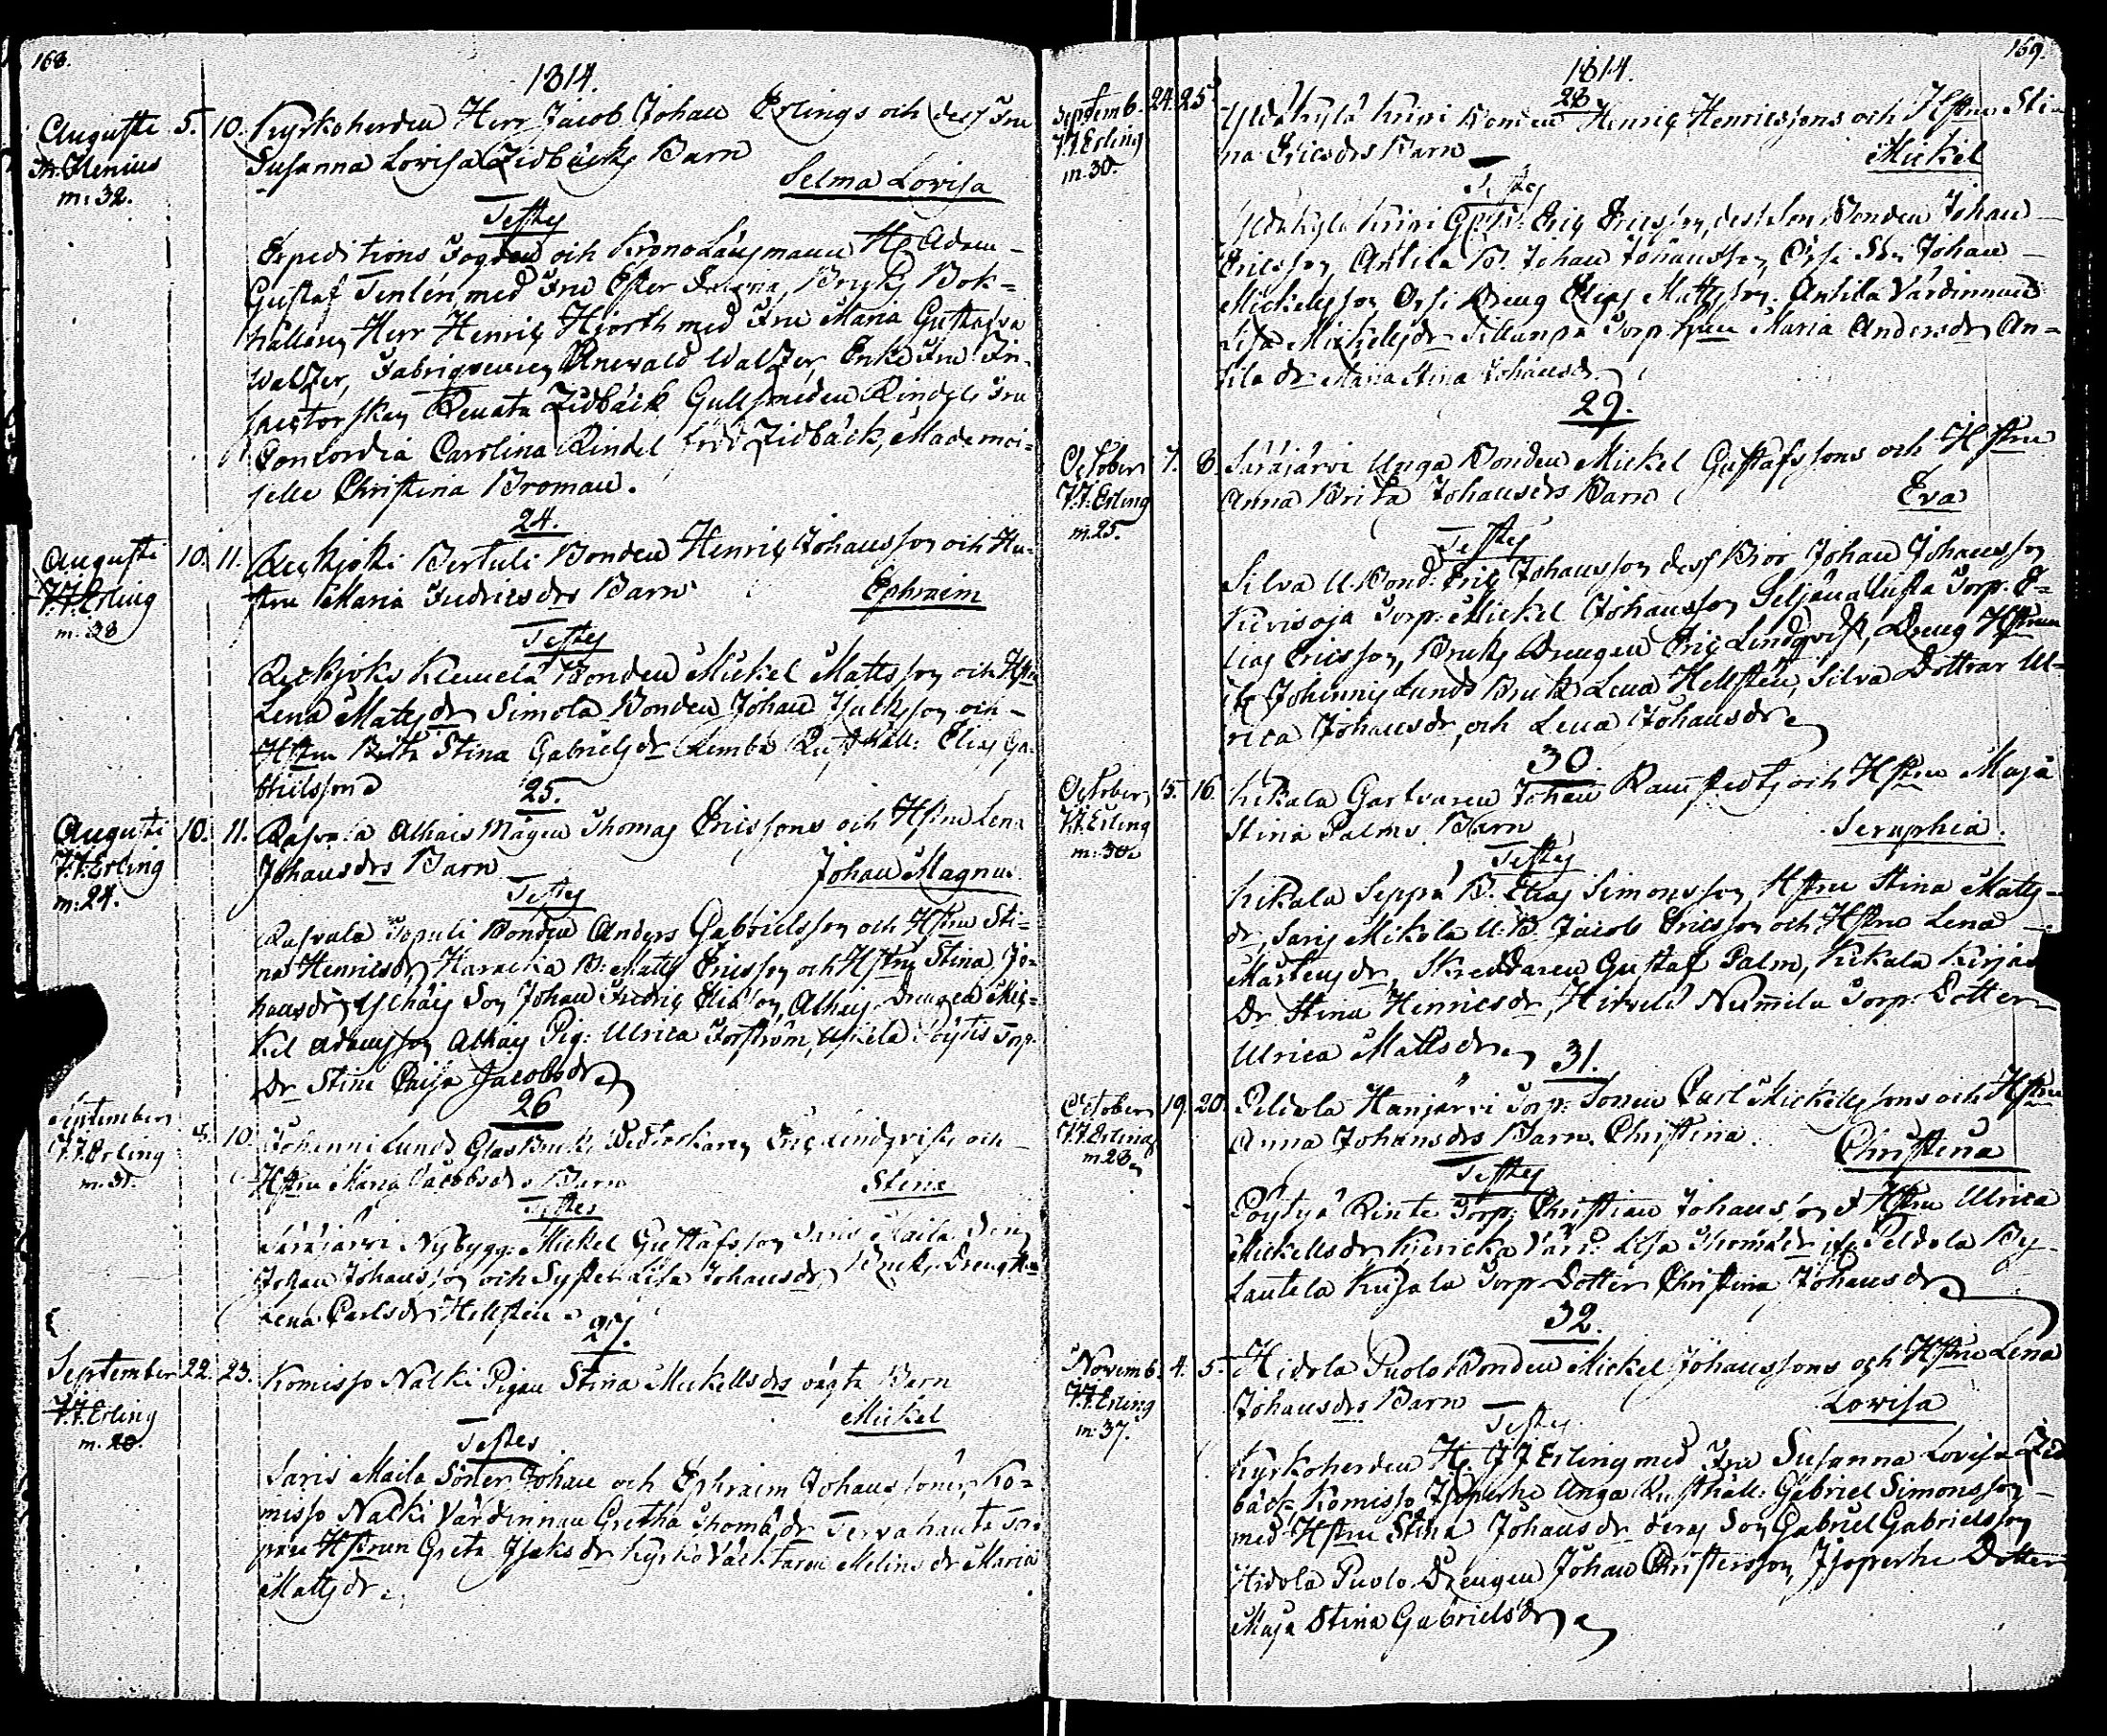 168.
1814.
Augusti 5. 10. Kyrkoherden Herr Jacob Johan Erlings och dess Fru
Henius Susanna Lovisa Zidbäcks Barn
m: 32. Selma Lovisa
Testes
Expeditions Fogden och Krono Länsmannen Hr Adam
Gustaf Tenlén med Fru Ester Bruks Bok=
hållaren Herr Henric Hjorth med Fru Maria Gustafva
Walzer, Anewald Walzer, Enke Fru In-
spectorskan Renata Zidbäck Gullsmeden Rindels Fru
Concordia Carolina Rindel född Zidbäck, Mademoi-
selle Christina Broman.
24.
Augusti 10. 11. Bertuli Bonden Henric Johansson och Hu-
J.J. Erling stru Maria Fredricsdrs Barn Ephraim
m: 38
Testes
Klemelä Bonden Mickel Mattsson och Hstru
Lena Matsdr Simola Bonden Johan och
Hstru Brita Stina Gabrielsdr Rusthåll: Elias Ga-
brielsson
25.
Augusti 10. 11. Rasvala Alhais Mågen Thomas Ericssons och Hstru Lena
J.J. Erling Johansdrs Barn Johan Magnus
m: 24.
Testes
Rasvala Bonden Anders Gabrielsson och Hstru Sti=
na Henricsdr, B: Matts Ericsson och Hstru Stina Jo-
hansdr, Son Johan Fredric Alhais Drengen Mic=
kel Adamsson Alhais Pig: Ulrica Forström, Torp
Dr Stina Caisa Jacobsdr
26
September 10. Johanni Lund Glas Bruks Eric Lindqvists och
J.J. Erling Hstru Maria Jacobsdrs Barn Stina
Testes
Säräjärvi Nybygg: Mickel Gustafsson Saris Maila
Johan Johansson och Syster Lisa Johansdr Bruks Dreng
Lena Carlsdr Hellsten
27.
September 22. 23. Komisso Nalki Pigan Stina Mickellsdrs oägta Barn
J.J. Erling Mickel
m. 20.
Testes
Saris Maila Söner Johan och Ephraim Johanssöner, Ko=
misso Nalki Värdinnan Gretha Thomædr Tervahauta Tor-
pare Hstrun Greta Isaksdr Kyrko Väcktaren Melins dr Maria
Mattsdr
169.
1814.
28
Septemb. 24. 25. Yldäkylä Krivi Bonden Henric Henricssons och Hstru Sti-
J.J. Erling na Ericsdrs Barn Mickel
m. 30.
Testes
Yldäkylä Krivi Eric Ericsson, dess Son Bonden Johan
Ericsson, Antila B. Johan Johansson, Orsi Son Johan
Mickelsson Orsi Dreng Elias Mattsson, Antila Värdinnan
Lisa Mickelsdr Sillanpä Torp Maria Andersdr An=
tila dr Maria Stina Johansdr
29.
October 7. 8. Säräjärvi Unga Bonden Mickel Gustafssons och Hstru
J.J. Erling Anna Brita Johansdrs Barn Eva
m. 25.
Testes
Silva U. Bond: Eric Johansson dess Bror Johan Johansson
Kivisoja Torp: Mickel Johansson Torp: E=
lias Ericsson, Bruks Drengen Eric Lindqvist, Dreng Hstrun
Johannis Lunds Bruk Lena Hellsten, Silva Dottrar Ul-
rica Johansdr och Lena Johansdr
30.
October 15. 16. Kikala Garfvaren Johan Ramstedts och Hstru Maja
J.J. Erling Stina Palms Barn Seraphia.
m: 30
Testes
Kikala Seppä B. Elias Simonsson, Hstru Stina Matts-
dr, Saris Mikola U. B. Jacob Ericsson och Hstru Lena
Mårtensdr, Skreddaren Gustaf Palm, Kikala
Dr Stina Henricsdr, Hirvelä Nummila Torp: Dotter
Ulrica Mattsdr
31.
October 19. 20. Peldola Hanjärvi Torp: Sonen Carl Mickellssons och Hstru
J.J. Erling Anna Johansdrs Barn Christina. Christina
m. 28
Testes
Pöytyä Rinta Torp: Christian Johansson & Hstru Ulrica
Mickellsdr Lisa Thomædr Peldola By
Lautela Kujala Torp Dotter Christina Johansdr
32.
Novemb. 4. 5. Hidola Puolo Bonden Mickel Johanssons och Hstru Lena
J.J. Erling Johansdrs Barn Lovisa
m: 37.
Testes
Kyrkoherden Hr J J Erling med Fru Susanna Lovisa Zid
bäck Komisso Isoperhe Unga Rusthåll: Gabriel Simonsson
med Hstru Stina Johansdr deras Son Gabriel Gabrielsson
Hidola Puolo Drengen Johan Christersson, Isoperhe Dotter
Maja Stina Gabrielsdr